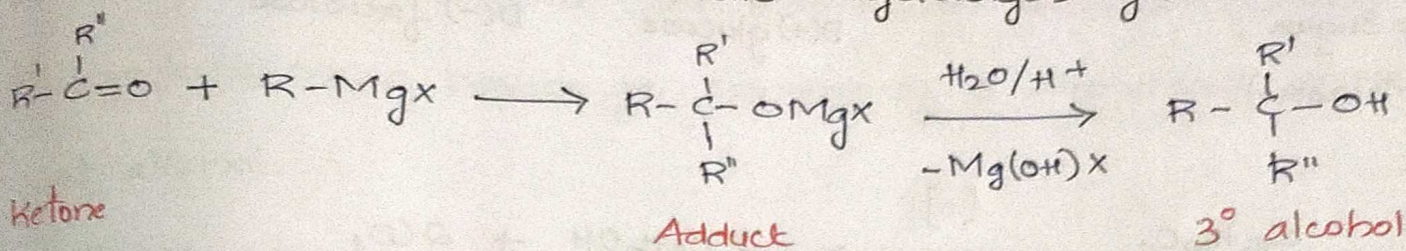 R"
R'-C=O + R-Mgx ⟶ R-C-OMgx ⟶ R-C-OH
R' H2O/H+ R'
R" -Mg(OH)x R"
Ketone Adduct 3° alcohol